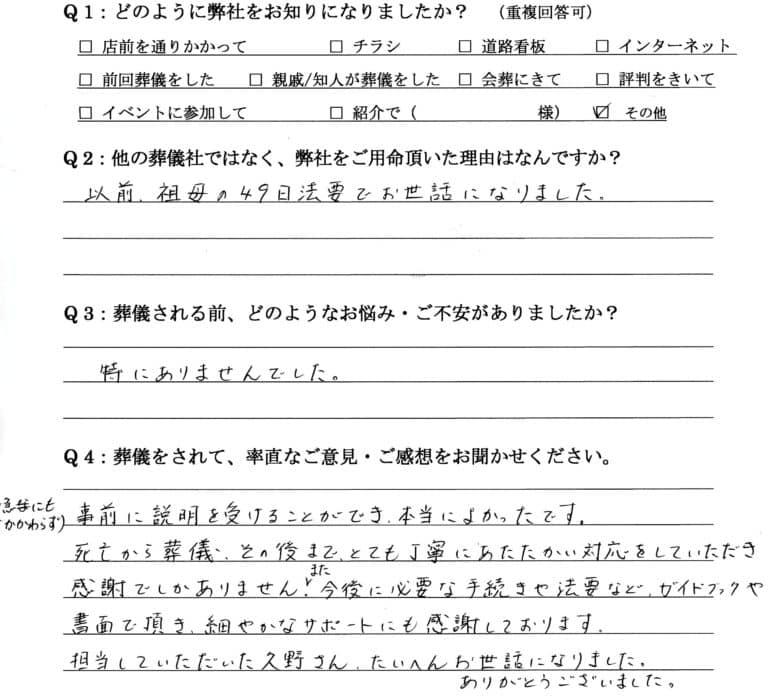 Q1：どのように弊社をお知りになりましたか？ （重複回答可）
□ 店前を通りかかって □ チラシ □ 道路看板 □ インターネット
□ 前回葬儀をした □ 親戚/知人が葬儀をした □ 会葬にきて □ 評判をきいて
□ イベントに参加して □ 紹介で（ 様） ☑ その他
Q2：他の葬儀社ではなく、弊社をご用命頂いた理由はなんですか？
以前、祖母の49日法要でお世話になりました。
Q3：葬儀される前、どのようなお悩み・ご不安がありましたか？
特にありませんでした。
Q4：葬儀をされて、率直なご意見・ご感想をお聞かせください。
にも
かかわらず)
事前に説明を受けることができ、本当によかったです。
死亡から葬儀、その後まで、とても丁寧にあたたかい対応をしていただき
感謝でしかありません！また今後に必要な手続きや法要など、ガイドブックや
書面で頂き、細やかなサポートにも感謝しております。
担当していただいた久野さん、たいへんお世話になりました。
ありがとうございました。